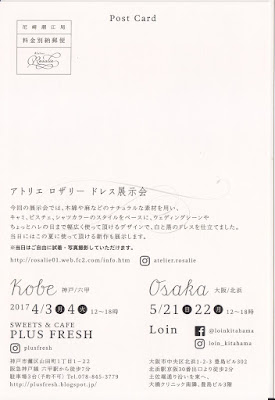 Post Card
料金別納郵便
Rosalie
アトリエ ロザリー ドレス展示会
今回の展示会では、木綿や麻などのナチュラルな素材を用い、
キャミ、ビスチェ、シャツカラーのスタイルをベースに、ウェディングシーンや
ちょっとハレの日まで幅広く使って頂けるデザインで、白と藍のドレスを仕立てました。
当日にはこの夏に装って頂ける新作を展示します。
※当日はご自由に試着・写真撮影していただけます。
http://rosalie01.web.fc2.com/info.htm
atelier.rosalie
Kobe 神戸/六甲
2017 4/3 月 4 火 12〜18時
SWEETS & CAFE
PLUS FRESH
plusfresh
神戸市灘区山田町3丁目1−22
阪急神戸線 六甲駅から徒歩7分
駐車場3台(予約不可) Tel.078-845-3779
http://plusfresh.blogspot.jp/
Osaka 大阪/北浜
5/21 日 22 月 12〜18時
Loin
@loinkitahama
loin_kitahama
大阪市中央区北浜1-2-3 豊島ビル302
北浜駅京阪30番出口より徒歩2分
土佐堀通り沿いを東へ、
大橋クリニック南隣、豊島ビル3階